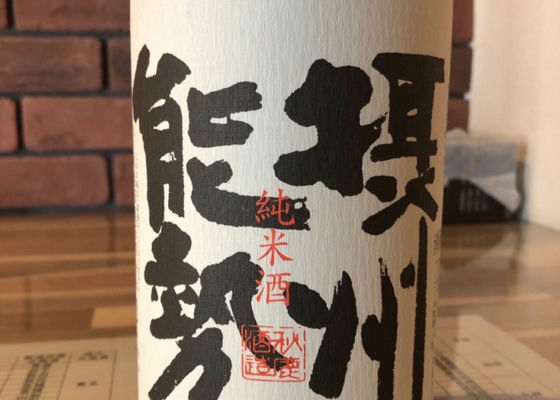 摂州
能勢
純米酒
秋鹿
酒造